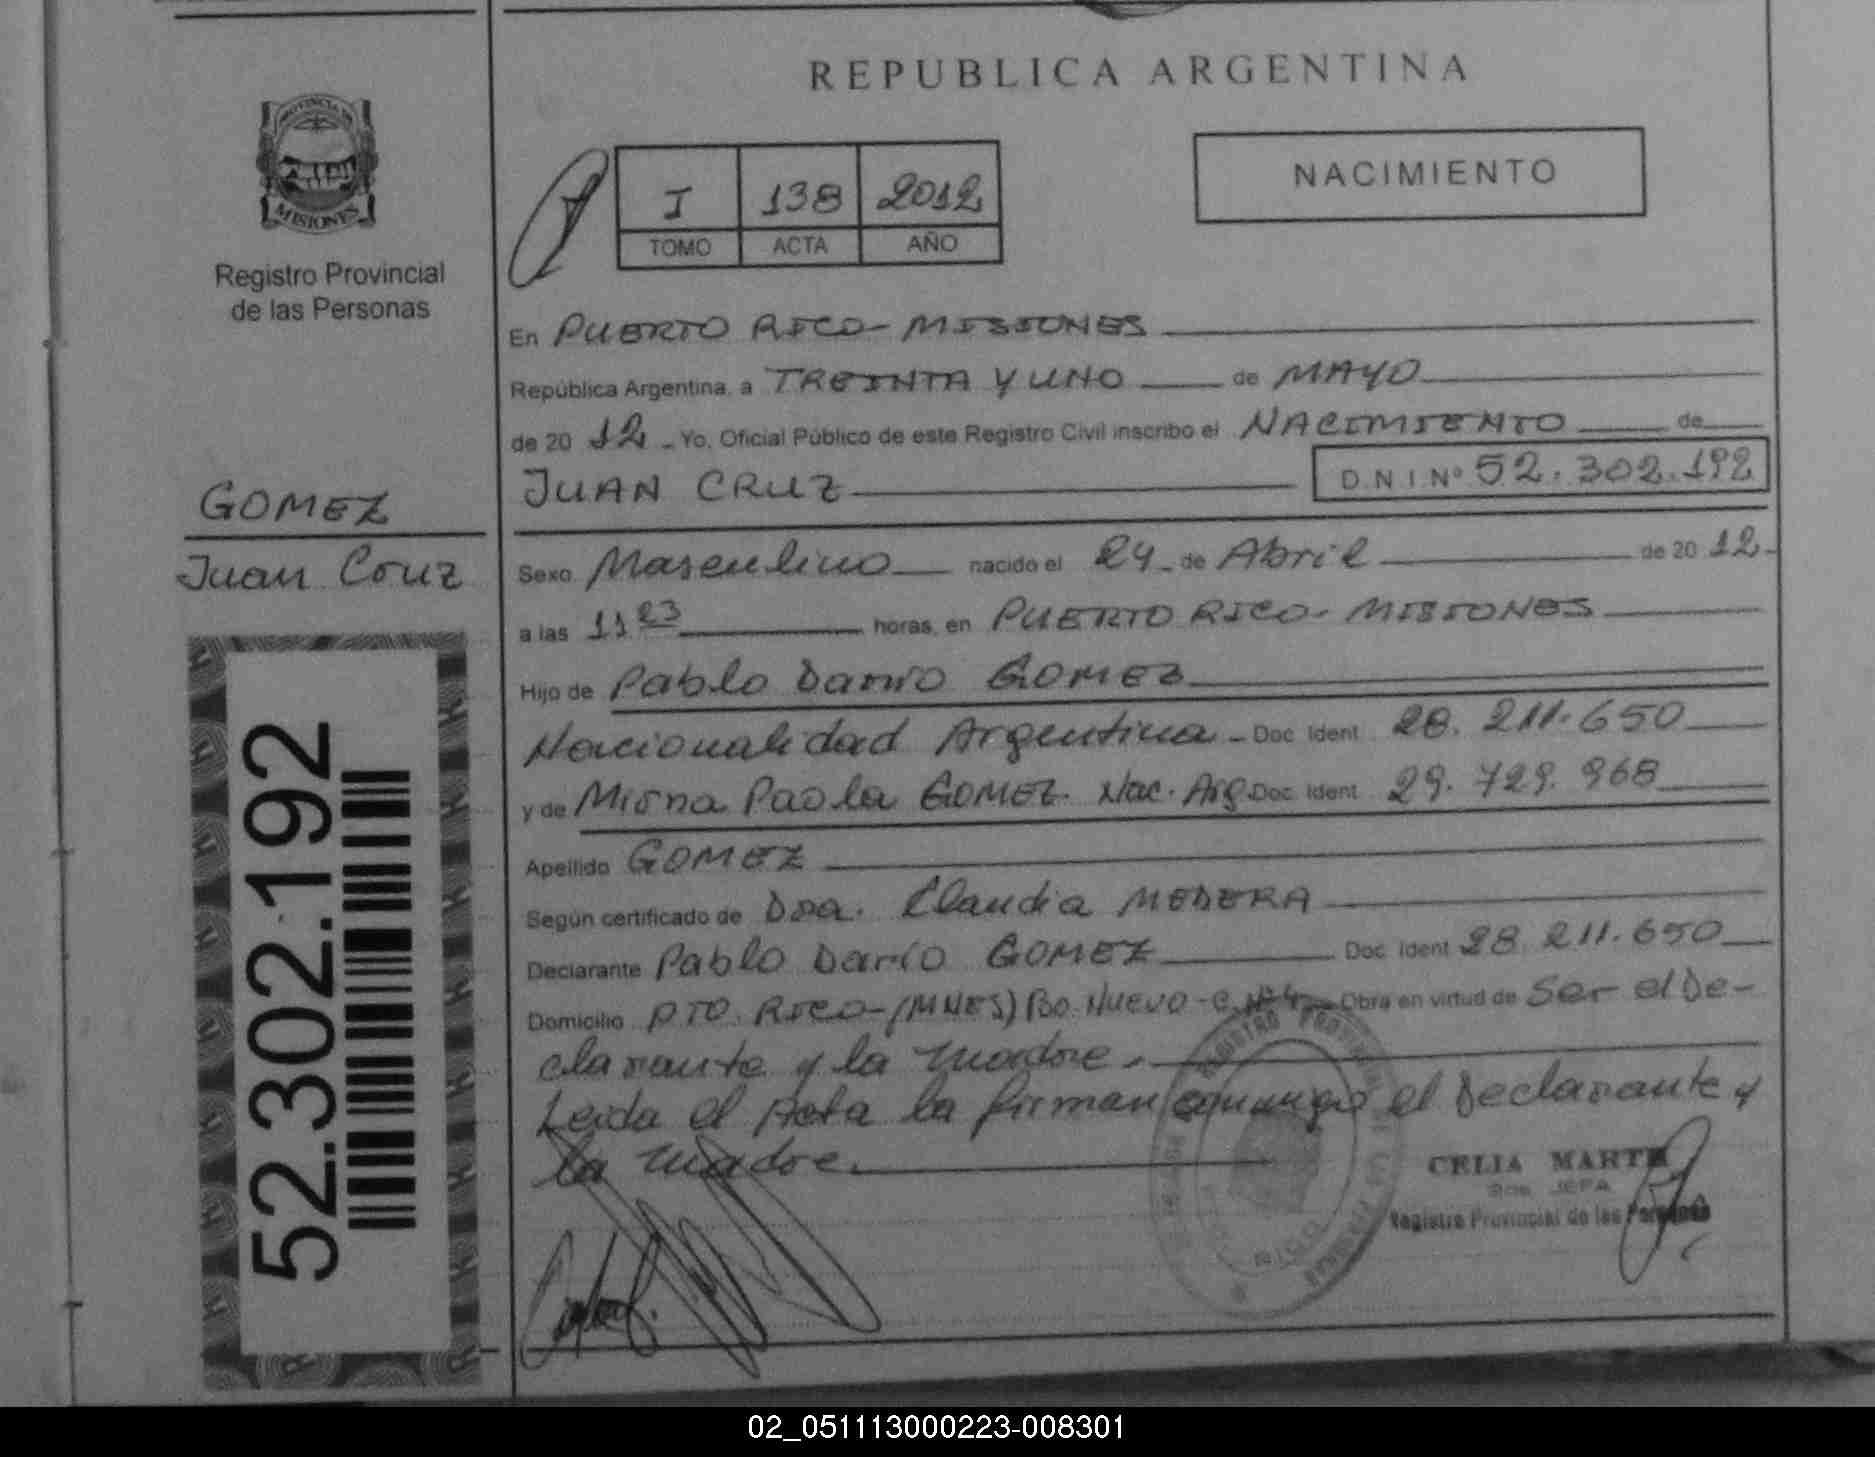 REPUBLICA ARGENTINA
PROVINCIA DE
MISIONES
Registro Provincial
de las Personas
I 138 2012
TOMO ACTA AÑO
NACIMIENTO
En PUERTO RICO - MISIONES
República Argentina, a TREINTA Y UNO de MAYO
de 20 12 - Yo, Oficial Público de este Registro Civil inscribo el NACIMIENTO de
JUAN CRUZ D.N.I. Nº 52.302.192
GOMEZ
Juan Cruz
52.302.192
Sexo Masculino nacido el 24 - de Abril de 20 12 -
a las 11 23 horas, en PUERTO RICO - MISIONES
Hijo de Pablo Darío GOMEZ
Nacionalidad Argentina - Doc. Ident. 28.211.650
y de Mirna Paola GOMEZ. Nac. Arg. Doc. Ident. 29.729.968
Apellido GOMEZ
Según certificado de Dra. Claudia MEDERA
Declarante Pablo Darío GOMEZ Doc. Ident 28.211.650
Domicilio PTO. RICO - (MNES) Bo. NUEVO - C. Nº 4 - Obra en virtud de Ser el De-
clarante y la madre.
Leida el Acta la firman conmigo el Declarante y
la madre.
CELIA MARTE
JEFA
Registro Provincial de las Personas
REGISTRO PROVINCIAL DE LAS PERSONAS
02_051113000223-008301